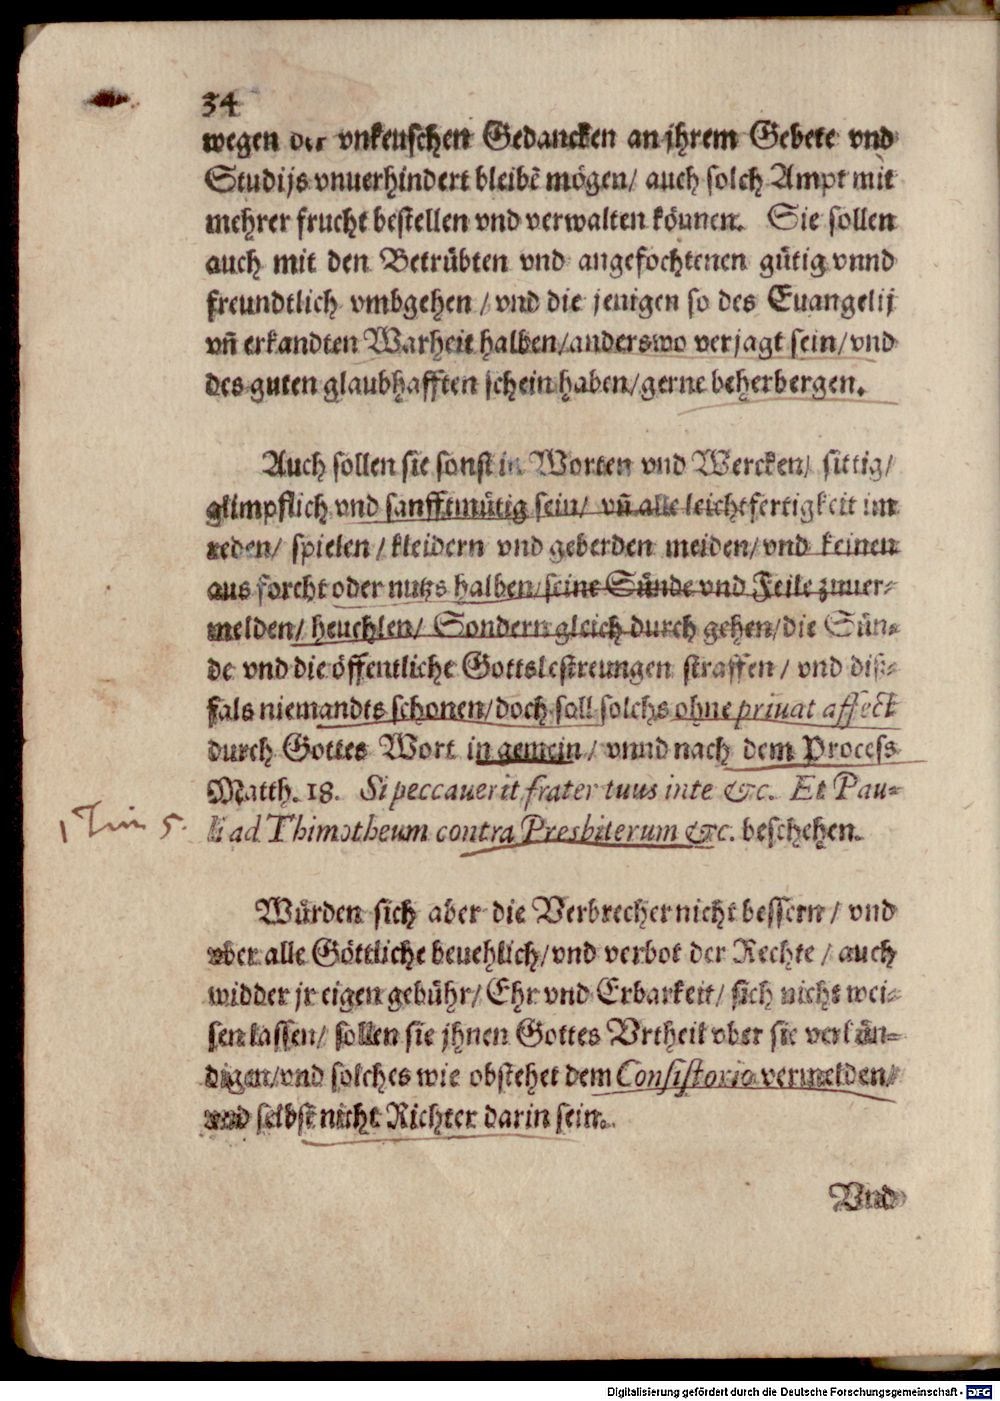 34
wegen der vnkeuschen Gedancken an jhrem Gebete vnd
Studijs vnuerhindert bleibẽ mögen/ auch solch Ampt mit
mehrer frucht bestellen vnd verwalten können. Sie sollen
auch mit den Betrübten vnd angefochtenen gütig vnnd
freundtlich vmbgehen / vnd die jenigen so des Euangelij
vñ erkandten Warheit halben/anderswo verjagt sein/vnd
des guten glaubhafften schein haben/gerne beherbergen.
Auch sollen sie sonst in Worten vnd Wercken/ sittig/
glimpflich vnd sanfftmütig sein/ vñ alle leichtfertigkeit im
reden/ spielen / kleidern vnd geberden meiden/vnd keinen
aus forcht oder nutzs halben/seine Sünde vnd Feile zuuer-
melden/ heuchlen/ Sondern gleich durch gehen/die Sün-
de vnd die öffentliche Gottslestreungen straffen / vnd dis-
fals niemandts schonen/doch soll solchs ohne priuat affect
durch Gottes Wort in gemein / vnnd nach dem Process
Matth. 18. Si peccauerit frater tuus in te &c. Et Pau-
li ad Thimotheum contra Presbiterum &c. beschehen.
1 Tim 5.
Würden sich aber die Verbrecher nicht bessern / vnd
vber alle Göttliche beuehlich/vnd verbot der Rechte / auch
widder jr eigen gebühr/ Ehr vnd Erbarkeit/ sich nicht wei-
sen lassen/ sollen sie jhnen Gottes Vrtheil vber sie verkün-
digen/vnd solches wie obstehet dem Consistorio vermelden/
vnd selbst nicht Richter darin sein.
Vnd
Digitalisierung gefördert durch die Deutsche Forschungsgemeinschaft - DFG